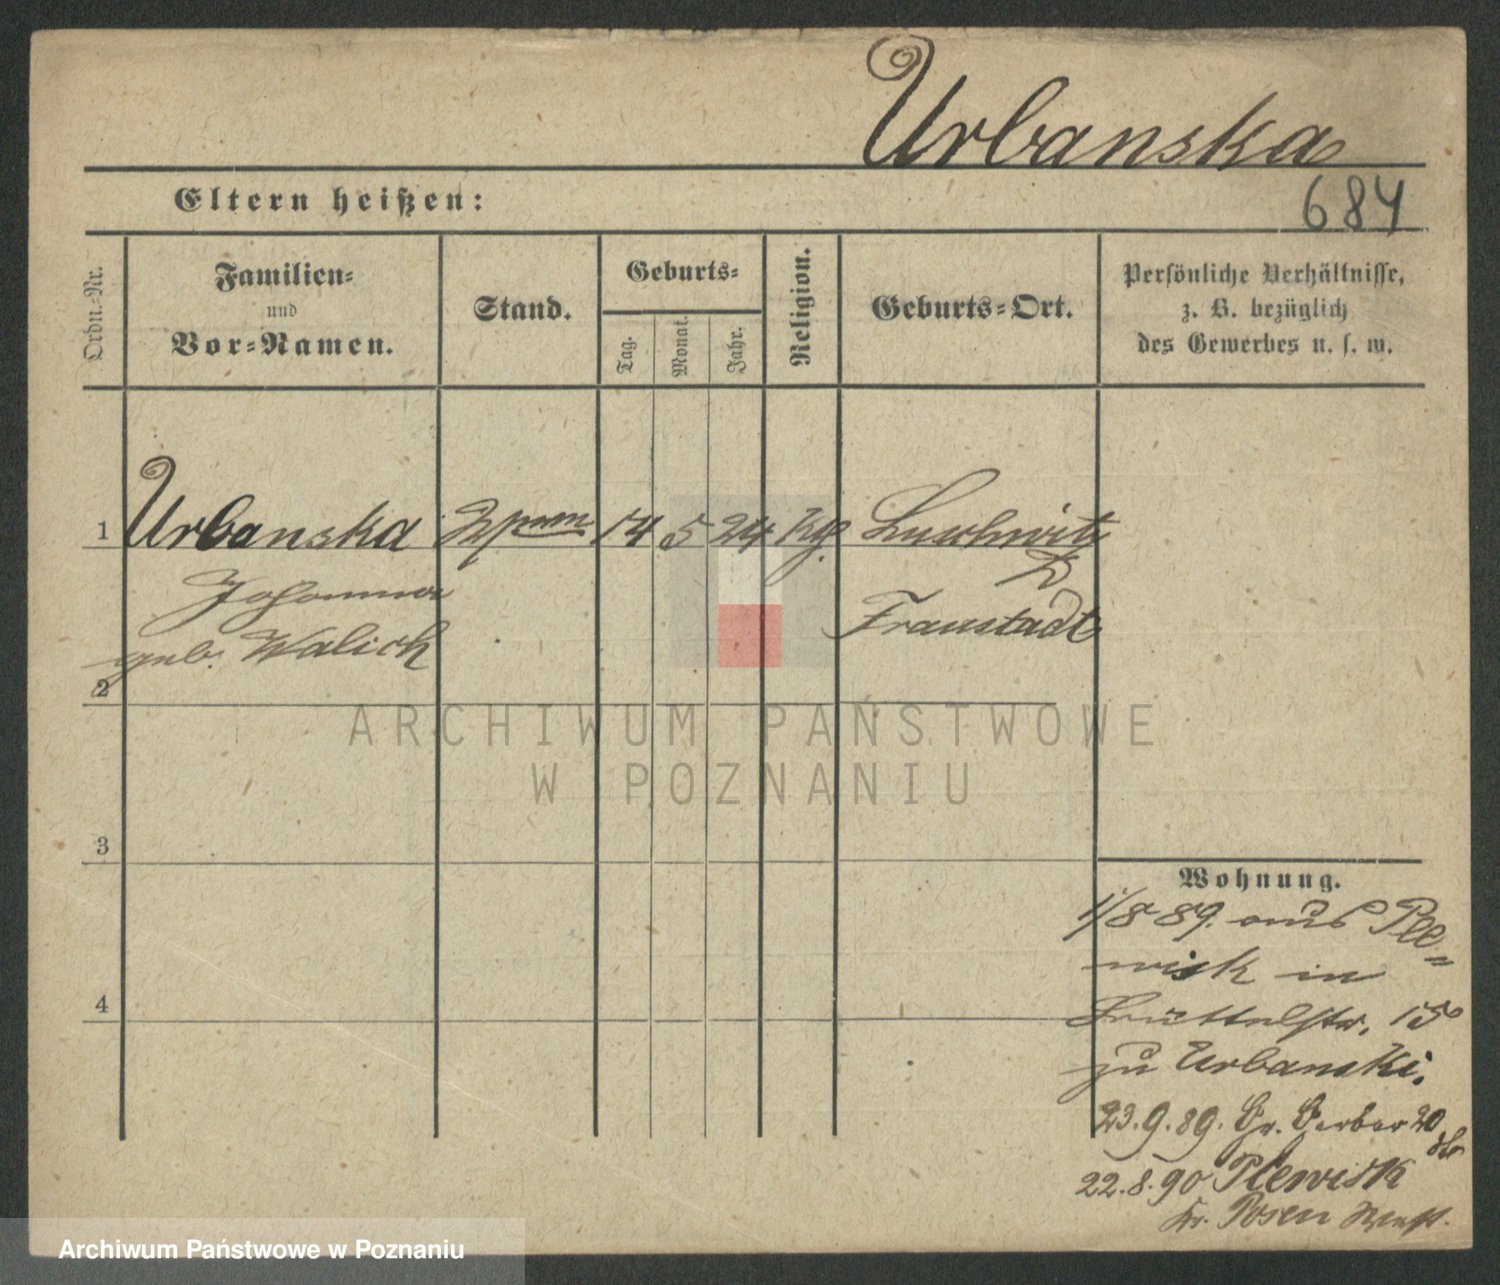 Urbanska
Eltern heißen:
684
Ordn.-Nr.
Familien-
und
Vor-Namen.
Stand.
Geburts-
Tag.
Monat.
Jahr.
Religion.
Geburts-Ort.
Persönliche Verhältnisse,
z. B. bezüglich
des Gewerbes u. s. w.
1 Urbanska 14 5 24 Luschwitz
Johanna
Fraustadt
geb. Walich
2
ARCHIWUM PAŃSTWOWE
W POZNANIU
3
Wohnung.
1/8 89. aus Ple=
wisk in
4
15
zu Urbanski.
23.9.89. Gr. Gerber 20
22.8.90 Plewisk
Kr. Posen West.
Archiwum Państwowe w Poznaniu